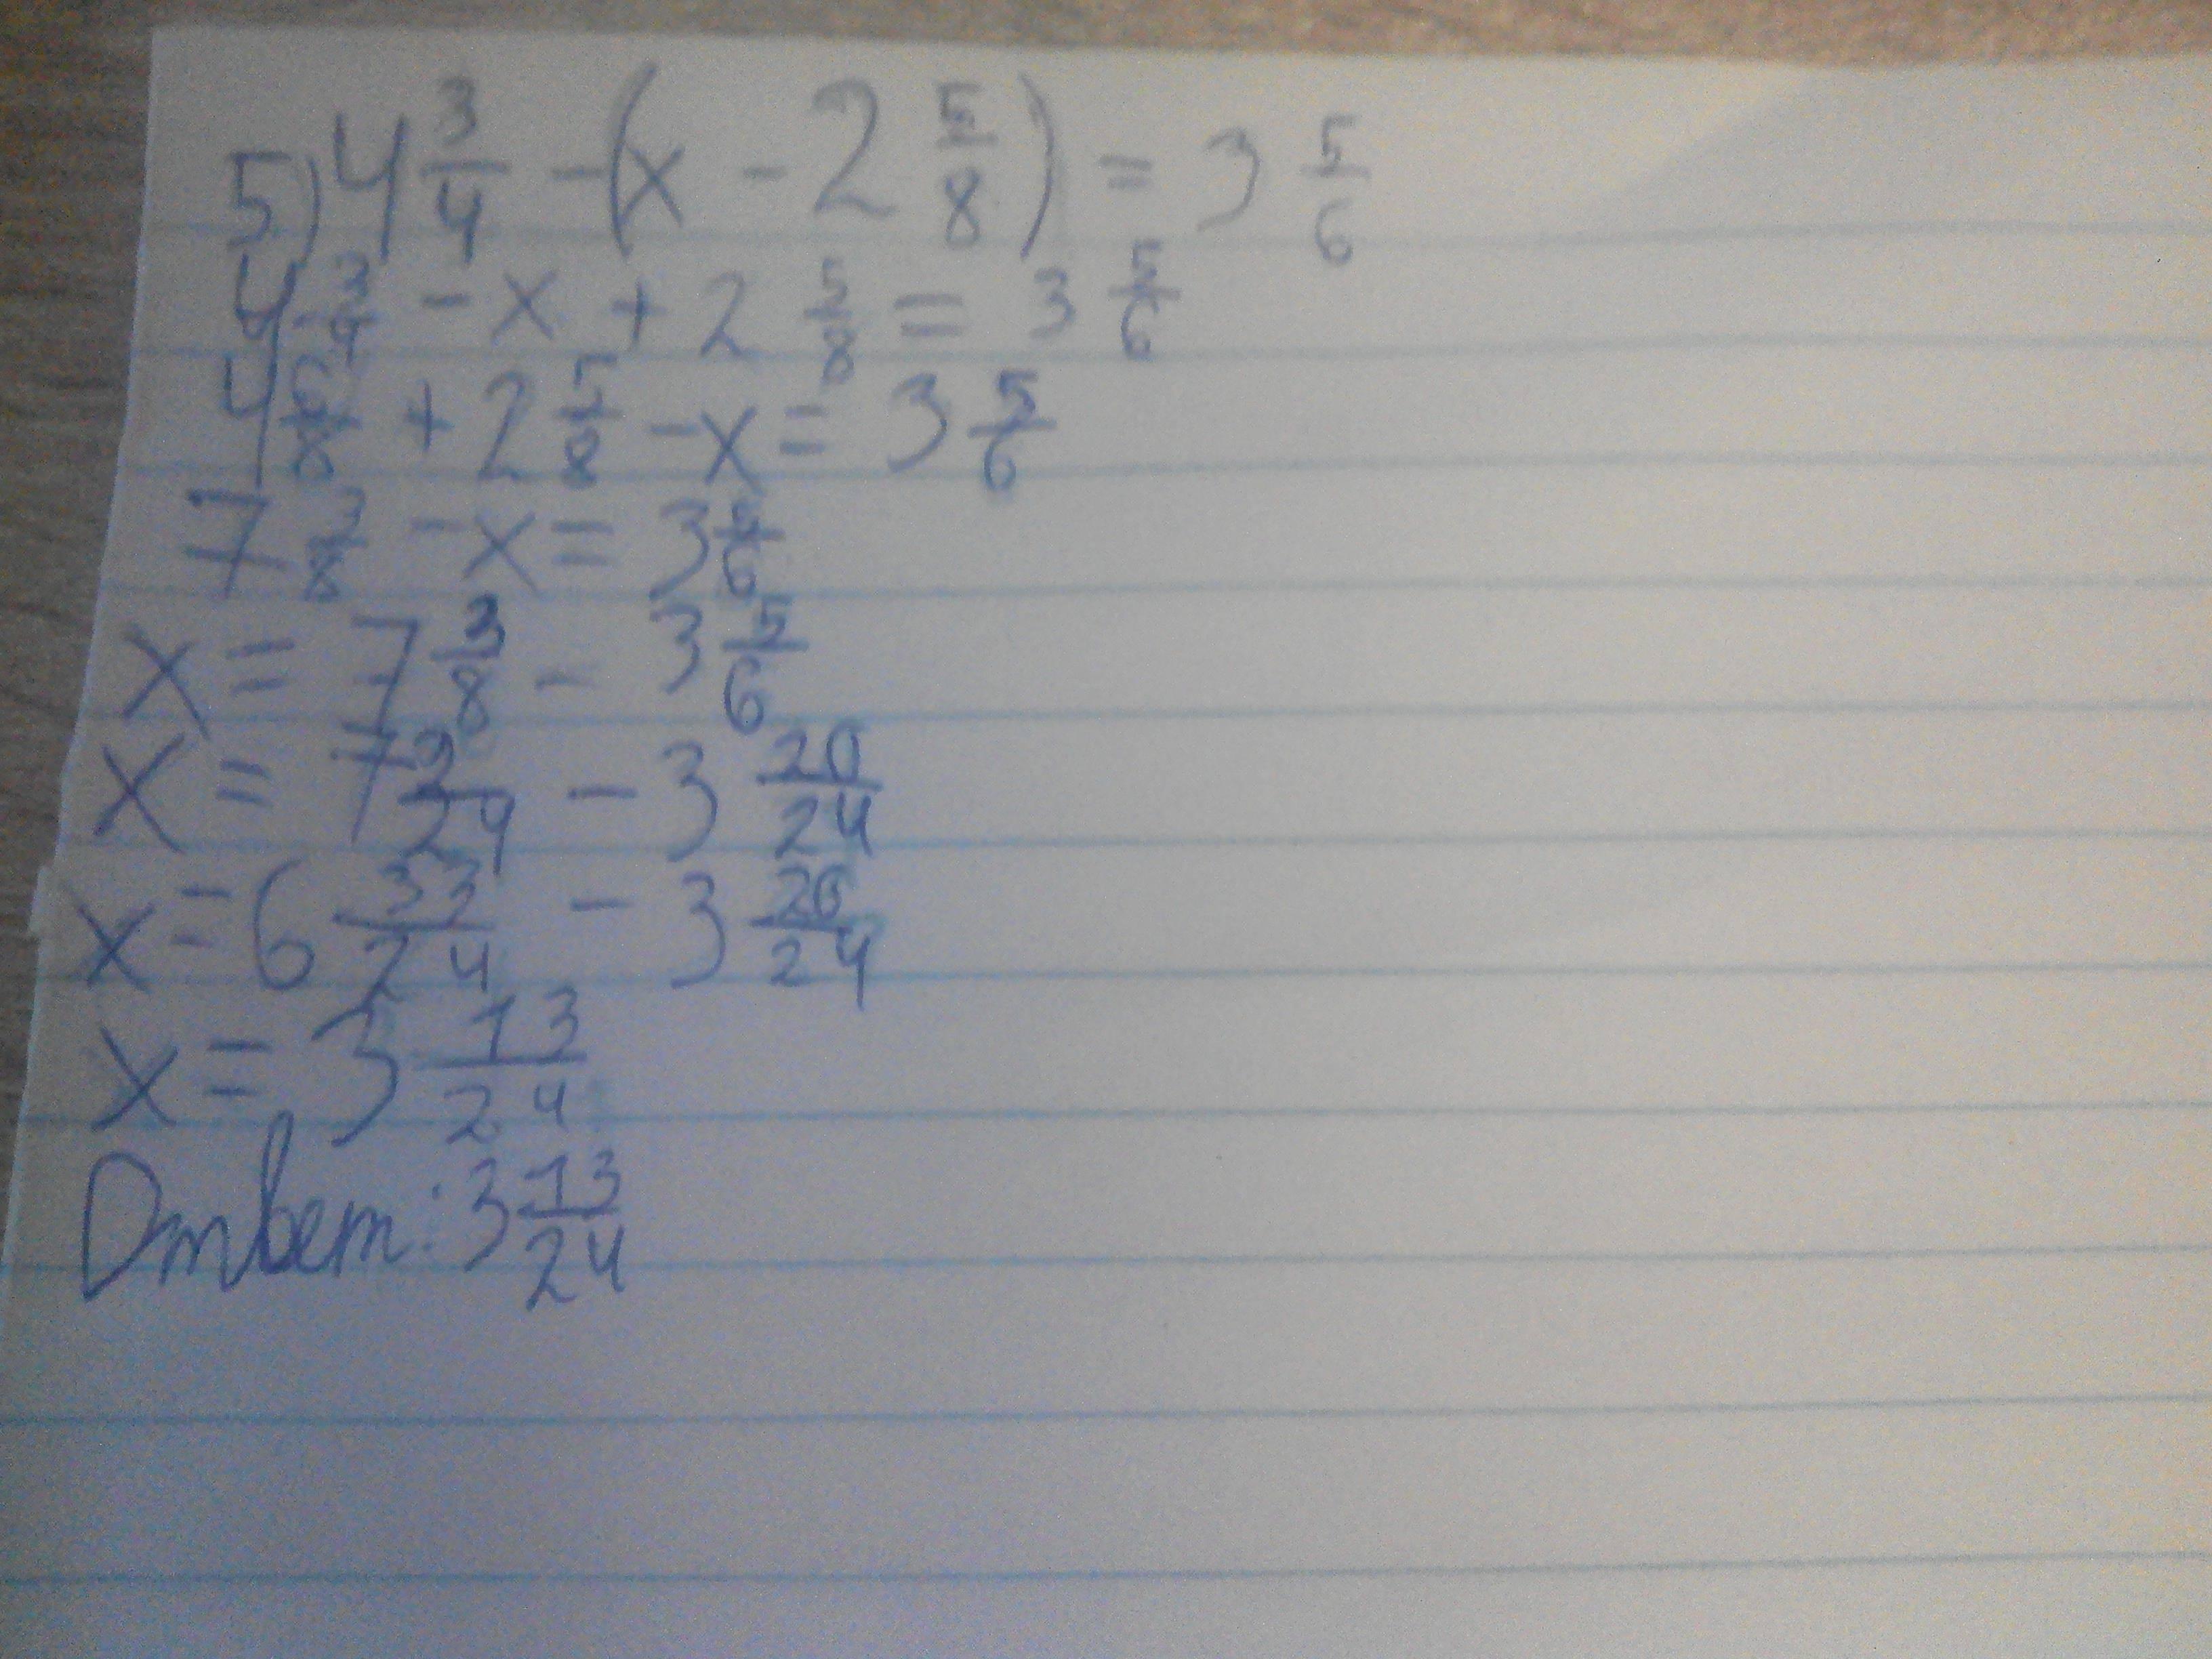 5) 4 3/4 - (x - 2 5/8) = 3 5/6
4 3/4 - x + 2 5/8 = 3 5/6
4 6/8 + 2 5/8 - x = 3 5/6
7 3/8 - x = 3 5/6
x = 7 3/8 - 3 5/6
x = 7 9/24 - 3 20/24
x = 6 33/24 - 3 20/24
x = 3 13/24
Ответ: 3 13/24